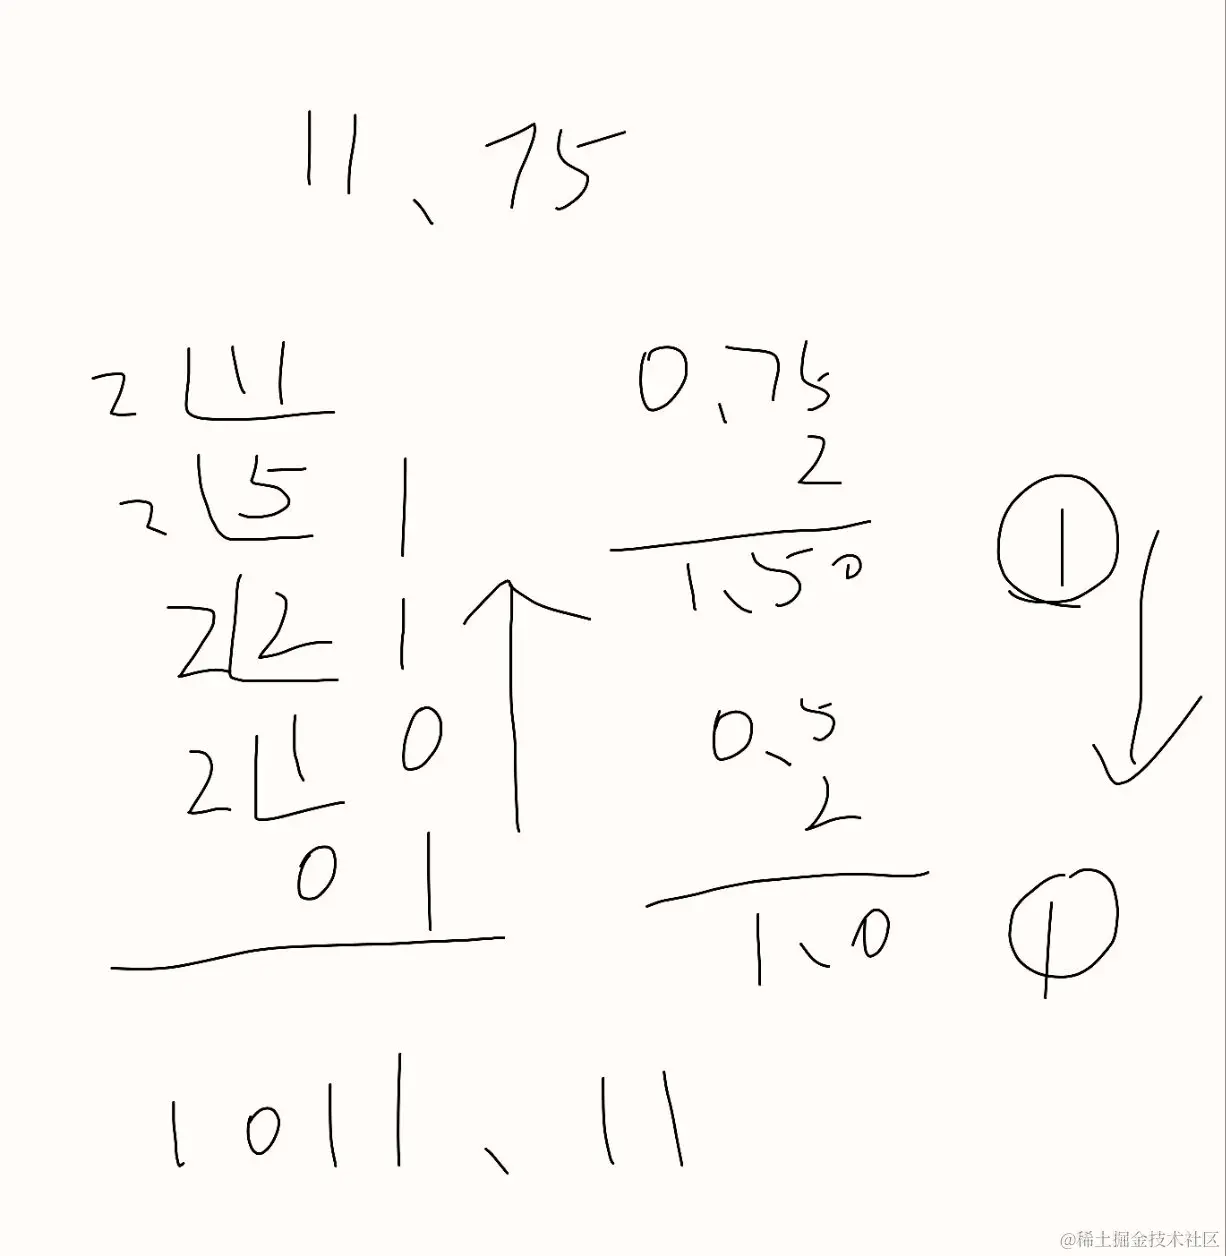 11、75
2 11
2 5 1
2 2 1
2 1 0
0 1
0、75
2
1、50
1
0、5
2
1、0
1
1011、11
@稀土掘金技术社区